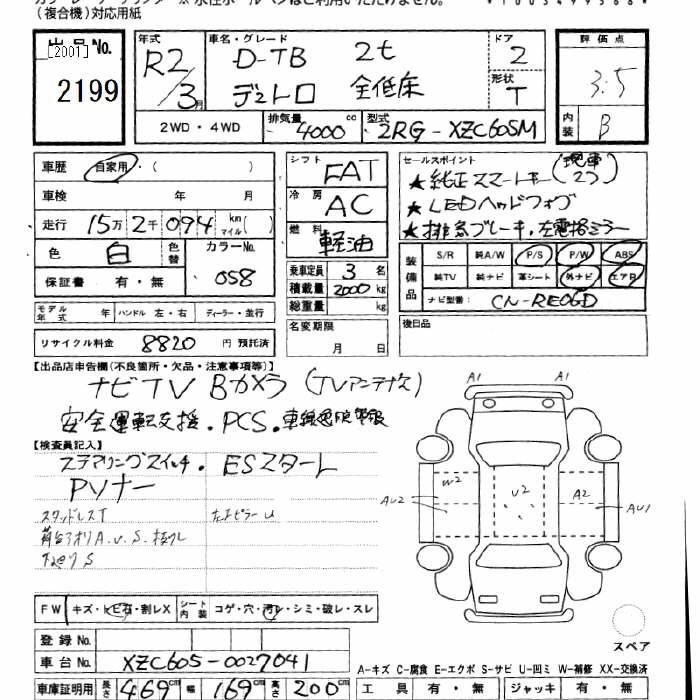 (複合機)対応用紙
出品No.
[2001]
2199
年式
R2/3月
車名・グレード
D-TB 2t
デュトロ 全低床
ドア
2
形状
T
評価点
3.5
内装
B
2WD・4WD
排気量
4000 cc
型式
2RG-XZC605M
車歴 自家用・( )
車検 年 月
走行 15万2千094 km マイル( )
色 白 色替 カラーNo. 058
保証書 有・無
シフト FAT
冷房 AC
燃料 軽油
乗車定員 3 名
積載量 2000 kg
総重量 kg
セールスポイント
★純正スマートキー(現車2つ)
★LEDヘッドフォグ
★排気ブレーキ,左電格ミラー
装備品
S/R 純A/W P/S P/W ABS
純TV 純ナビ 革シート 外ナビ エアB
ナビ型番: CN-RE06D
モデル年式 年 ハンドル 左・右 ディーラー・並行
名変期限 月 日
後日品
リサイクル料金 8820 円 預託済
【出品店申告欄(不良箇所・欠品・注意事項等)】
ナビTV Bカメラ (TVアンテナ欠)
安全運転支援.PCS.車線逸脱警報
【検査員記入】
ステアリングスイッチ. ESスタート
Pソナー
スタッドレスT
左右ピラーU
下廻りS
A1 A1
W2 U2 A2
AU2 AU1
FW キズ・トビ石・割レX シート内装 コゲ・穴・汚レ・シミ・破レ・スレ
スペア
登録No.
車台No. XZC605-0027041
A-キズ C-腐食 E-エクボ S-サビ U-凹ミ W-補修 XX-交換済
車庫証明用 長さ 469cm 幅 169cm 高さ 200cm
工具 有・無 ジャッキ 有・無